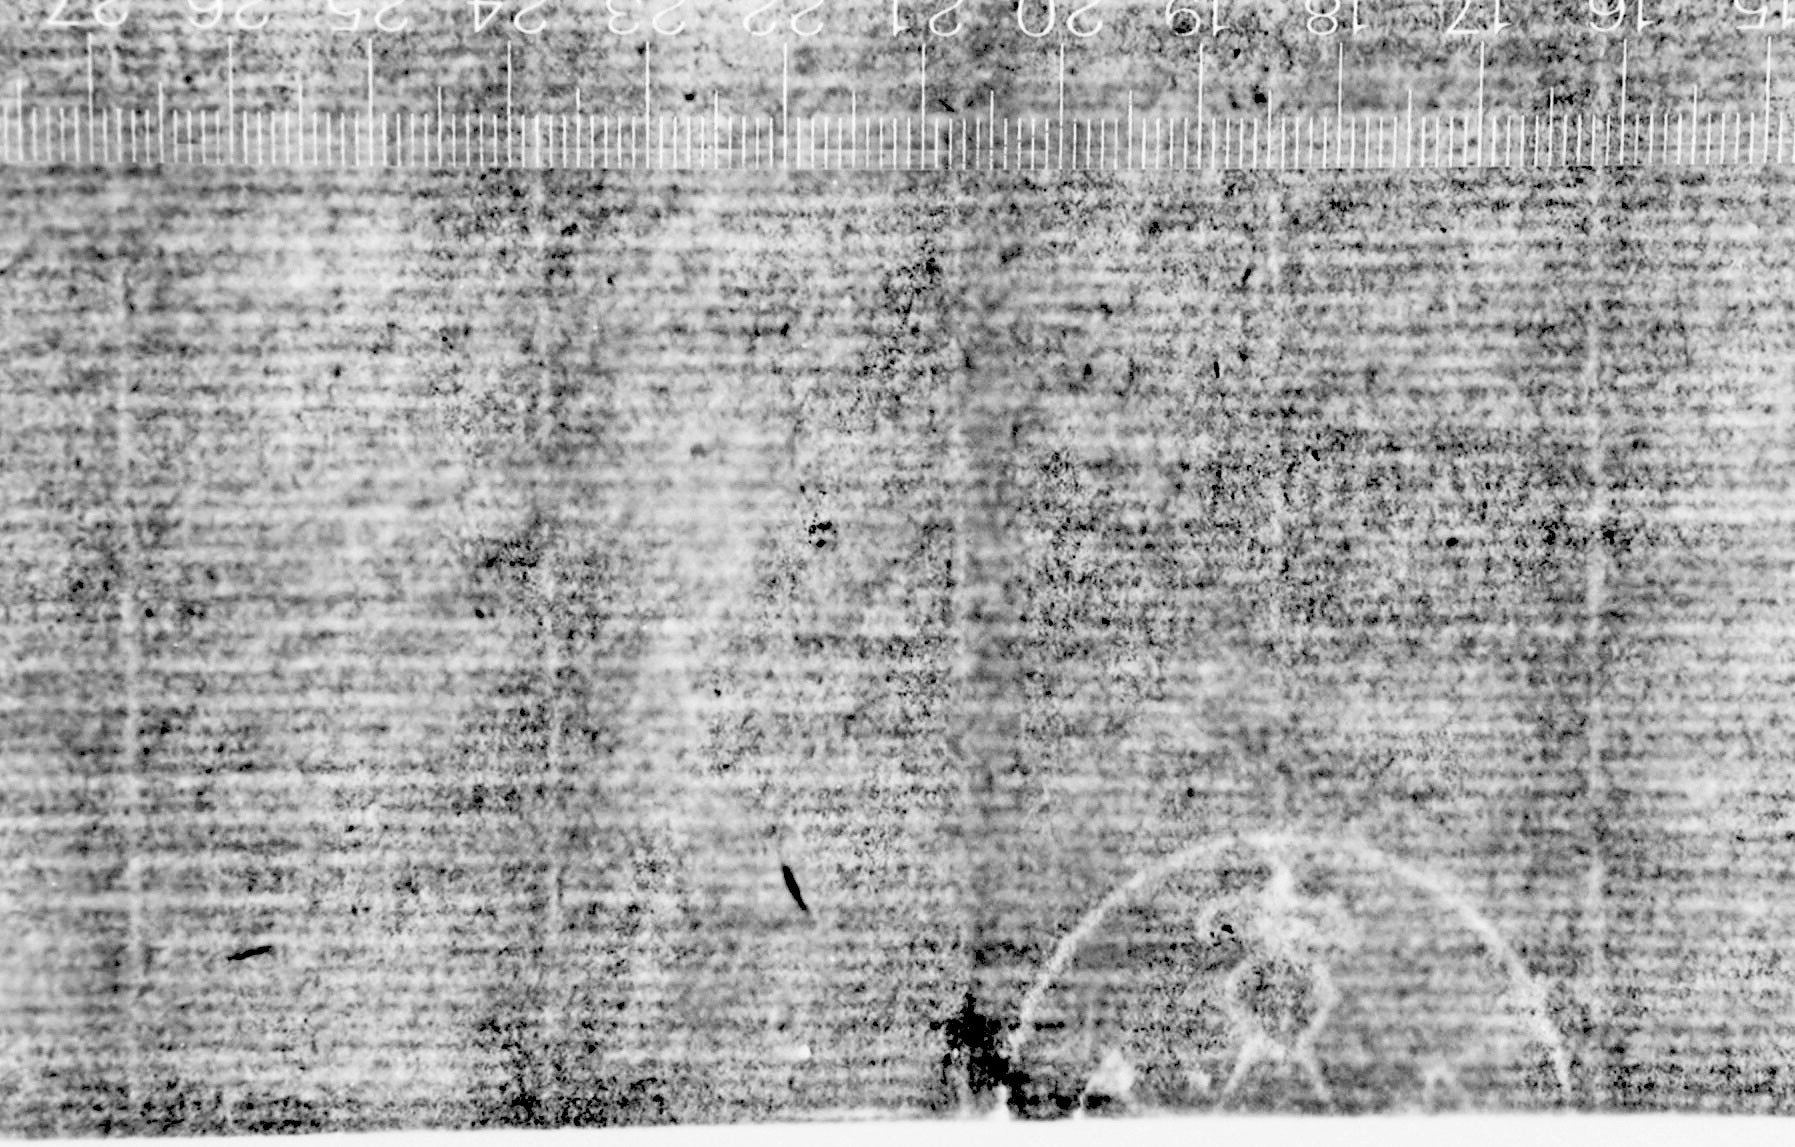 27 26 25 24 23 22 21 20 19 18 17 16 15